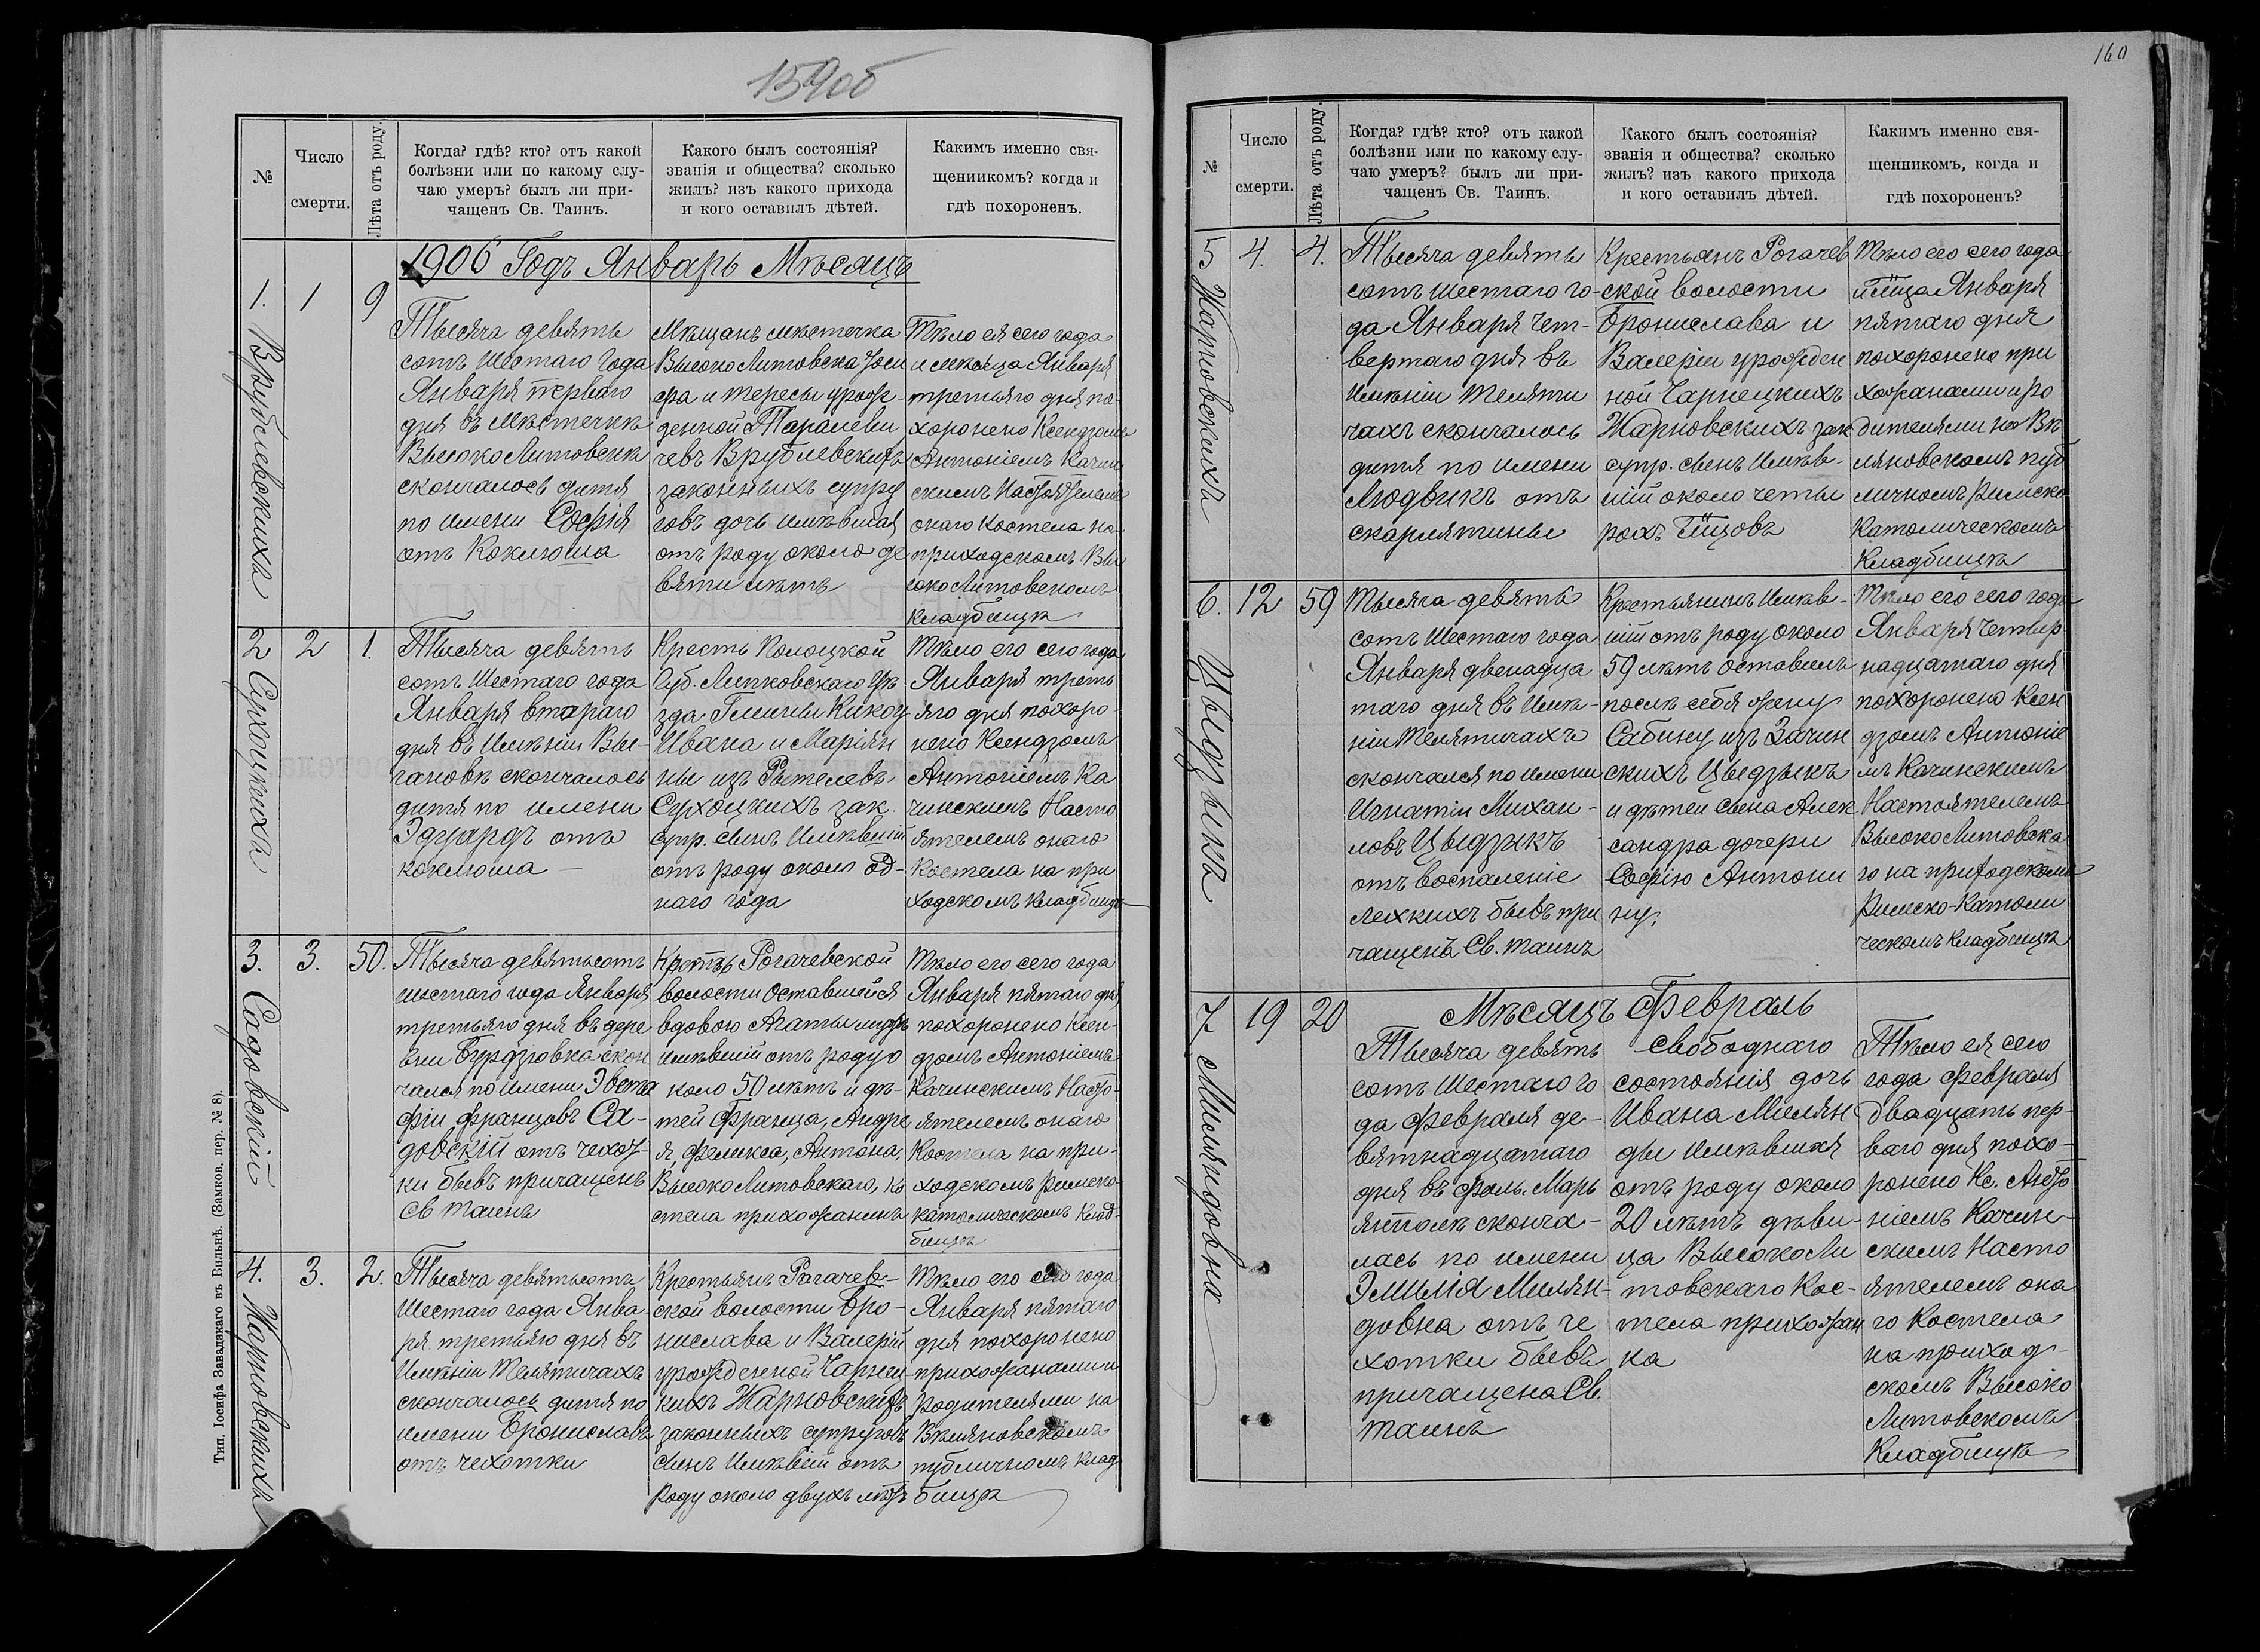 159об
№
Число
смерти.
Лѣта отъ роду.
Когда? гдѣ? кто? отъ какой
болѣзни или по какому слу-
чаю умеръ? былъ ли при-
чащенъ Св. Таинъ.
Какого былъ состоянія?
званія и общества? сколько
жилъ? изъ какого прихода
и кого оставилъ дѣтей.
Каким​ъ именно свя-
щенникомъ? когда и
гдѣ похороненъ.
1906 Годъ Январь Мѣсяцъ
1. 1 9
Врублевскихъ
Тысяча девять
сотъ Шестаго Года
Января перваго
дня въ Мѣстечкѣ
ВысокоЛитовскѣ
скончалось дитя
по имени Софія
отъ Коклюша
Мѣщанъ мѣстечка
ВысокоЛитовска Іоси
фа и Тересы урож-
денной Таралеви
чевъ Врублевскихъ
законныхъ супру
говъ дочь имѣвшая
отъ роду около де
вяти лѣтъ
Тѣло ея сего года
и мѣсяца Января
третьяго дня по-
хоронено Ксендзомъ
Антоніемъ Качин
скимъ Настоятелемъ
онаго Костела на
приходскомъ Вы
сокоЛитовскомъ
Кладбищѣ
2 2 1.
Сухоцкихъ
Тысяча девять
сотъ Шестаго года
Января втараго
дня въ Имѣніи Вы-
гановѣ скончалось
дитя по имени
Эдуардъ отъ
коклюша
Кресть Полоцкой
Губ. Липковскаго Уѣ
зда Гмины Кикоч
Ивана и Маріян
ны изъ Рытелевъ
Сухоцкихъ зак.
супр. сынъ Имѣвшій
отъ роду около од-
наго года
Тѣло его сего года
Января треть
яго дня похоро-
нено Ксендзомъ
Антоніемъ Ка
чинскимъ Насто
ятелемъ онаго
Костела на при
ходскомъ кладбищѣ
3. 3. 50.
Садовскій
Тысяча девятьсотъ
шестаго года Января
третьяго дня въ дере
вни Бурдзовка скон
чался по имени Эвста
фій Францовъ Са-
довскій отъ чехот
ки бывъ причащенъ
Св Таинъ
Крстьъ Рогачевской
волости Оставшейся
вдовою Агаты мужъ
имѣвшій отъ роду о
коло 50 лѣтъ и дѣ-
тей Франца, Андре
я Феликса, Антона,
ВысокоЛитовскаго, ко
стела прихожанинъ
Тѣло его сего года
Января пятаго дня
похоронено Ксен-
дзомъ Антоніемъ
Качинскимъ Насто-
ятелемъ онаго
Костела на при-
ходскомъ Римско
католическомъ Клад-
бищѣ
4. 3. 2.
Жарновскихъ
Тысяча девятьсотъ
Шестаго года Янва
ря третьяго дня въ
Имѣніи Телятичахъ
скончалось дитя по
имени Брониславъ
отъ чехотки
Крестьянъ Рагачев-
ской волости Бро-
нислава и Валеріи
урожденной Чарнец
кихъ Жарновскихъ
законныхъ супруговъ
сынъ Имѣвшій отъ
роду около двухъ лѣтъ
Тѣло его сего года
Января пятаго
дня похоронено
прихожанами и
родителями на
Вѣляновскомъ
публичномъ Клад
бищѣ
Тип. Іосифа Завадзкаго въ Вильнѣ. (Замков. пер. № 8).
160
№
Число
смерти.
Лѣта отъ роду.
Когда? гдѣ? кто? отъ какой
болѣзни или по какому слу-
чаю умеръ? былъ ли при-
чащенъ Св. Таинъ.
Какого былъ состоянія?
званія и общества? сколько
жилъ? изъ какого прихода
и кого оставилъ дѣтей.
Какимъ именно свя-
щенникомъ, когда и
гдѣ похороненъ?
5 4. 4.
Жарновскихъ
Тысяча девять
сотъ Шестаго го-
да Января Чет-
вертаго дня въ
Имѣніи Теляти
чахъ скончалось
дитя по имени
Людвикъ отъ
скарлятины
Крестьянъ Рогачев
ской волости
Бронислава и
Валеріи урожден
ной Чарнецкихъ
Жарновскихъ зак
супр. сынъ Имѣв-
шій около четы
рохъ Гицовъ
Тѣло его сего года
мсца Января
пятаго дня
похоронено при
хожанами и ро
дителями на Вѣ
ляновскомъ пуб
личномъ Римско
Католическомъ
Кладбищѣ
6. 12 59
Цыдзыкъ
Тысяча девять
сотъ Шестаго года
Января двенадца
таго дня въ Имѣ-
ніи Телятичахъ
скончался по имени
Игнатій Михаи-
ловъ Цыдзыкъ
отъ воспаленіе
лехкихъ бывъ при
чащенъ Св. Таинъ
Крестьянинъ Имѣв-
шій отъ роду около
59 лѣтъ оставилъ
послѣ себя жену
Сабину изъ Зачин
скихъ Цыдзыкъ
и дѣтей сына Алек
сандра дочери
Софію Антони
ну.
Тѣло его сего года
Января Четыр
надцатаго дня
похоронено Ксен
дзомъ Антоніе
мъ Качинскимъ
Настоятелемъ
ВысокоЛитовска
го на приходскомъ
Римско-Католи
ческомъ Кладбищѣ
Мѣсяцъ Февраль
7 19 20
Миляндовна
Тысяча девять
сотъ Шестаго го
да Февраля де-
вятнадцатаго
дня въ Фоль. Марь
янполѣ сконча-
лась по имени
Эмилія Милян-
довна отъ че
хотки бывъ
причащена Св.
Таинъ
Свободнаго
состоянія дочь
Ивана Милян
ды имѣвшая
отъ роду около
20 лѣтъ дѣви-
ца ВысокоЛи
товскаго Кос-
тела прихожан
ка
Тѣло ея сего
года Февраля
двадцать пер-
ваго дня похо-
ронено Кс. Анто
ніемъ Качин-
скимъ Насто
ятелемъ она
го Костела
на приход-
скомъ Высоко
Литовскомъ
Кладбищѣ